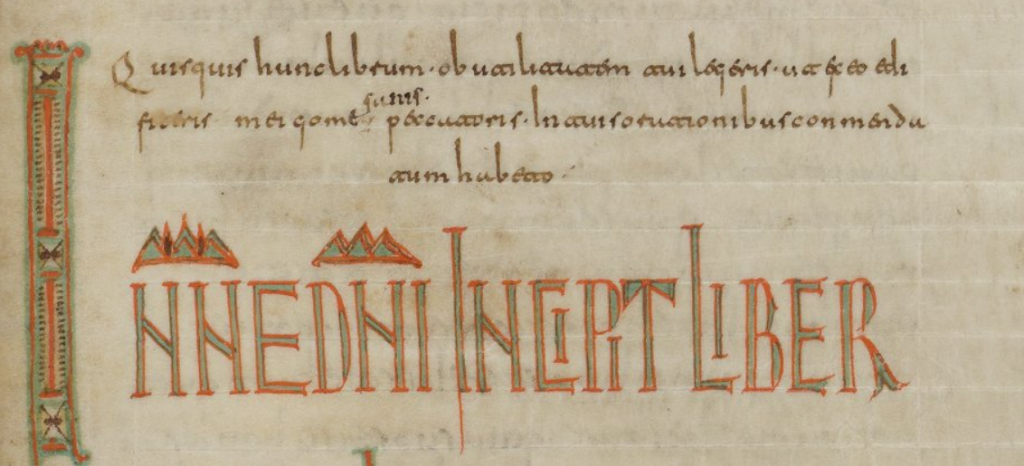 Quisquis hunc librum · ob utilitatem tui legeris · ut ex eo edi
sanis ·
ficeris mei gome peccatoris · In tuis orationibus conmenda
tum habeto ·
I N̄NE DN̄I INCIPIT LIBER